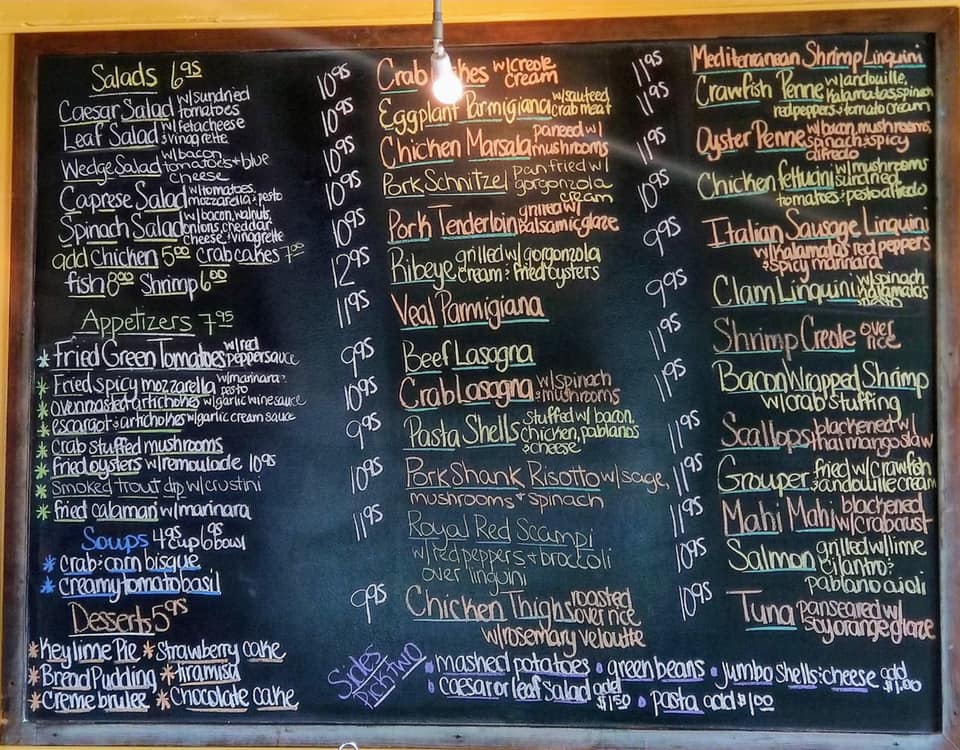 Salads 6.95
Caesar Salad w/sundried
tomatoes
Leaf Salad w/fetacheese
& vinagrette
Wedge Salad w/bacon
tomatoes + blue
cheese
Caprese Salad w/tomatoes,
mozzarella & pesto
Spinach Salad w/bacon, walnuts,
onions, cheddar
cheese & vinagrette
add Chicken 5.00 Crabcakes 7.00
fish 8.00 Shrimp 6.00
Appetizers 7.95
* Fried Green Tomatoes w/red
peppersauce
* Fried spicy mozzarella w/marinara &
pesto
* oven roasted artichokes w/garlic wine sauce
* escargot & artichokes w/garlic cream sauce
* crab stuffed mushrooms
* fried oysters w/remoulade 10.95
* Smoked trout dip w/crustini
* fried calamari w/marinara
Soups 4.95 cup 6.95 bowl
* crab & corn bisque
* creamy tomato basil
Desserts 5.95
* Key lime Pie * Strawberry cake
* Bread Pudding * tiramisu
* Creme brulee * Chocolate cake
10.95 Crab w/creole
cream
10.95 Eggplant Parmigiana w/sauteed
crabmeat
10.95 Chicken Marsala paneed w/
mushrooms
10.95 Pork Schnitzel panfried w/
gorgonzola
cream
10.95 Pork Tenderloin grilled w/
balsamic glaze
12.95 Ribeye grilled w/gorgonzola
cream & fried oysters
11.95 Veal Parmigiana
9.95 Beef Lasagna
10.95 Crab Lasagna w/spinach
& mushrooms
9.95 Pasta Shells stuffed w/bacon,
chicken, pablanos
& cheese
10.95 Pork Shank Risotto w/sage,
mushrooms + spinach
11.95 Royal Red Scampi
w/red peppers & broccoli
over linguini
9.95 Chicken Thighs roasted
over rice
w/rosemary veloutte
11.95 Mediterranean Shrimp Linguini
11.95 Crawfish Penne w/andouille,
Kalamatas, spinach
red peppers & tomato cream
11.95 Oyster Penne w/bacon, mushrooms,
spinach & spicy
alfredo
10.95 Chicken fettucini w/mushrooms
sundried
tomatoes & pesto alfredo
9.95 Italian Sausage Linguini
w/Kalamatas, red peppers
& spicy marinara
9.95 Clam Linguini w/spinach
kalamatas
11.95 Shrimp Creole over
rice
11.95 Bacon Wrapped Shrimp
w/crab stuffing
11.95 Scallops blackened w/
thai mango slaw
11.95 Grouper fried w/crawfish
& andouille cream
11.95 Mahi Mahi blackened
w/crabcrust
10.95 Salmon grilled w/lime
cilantro &
pablano aioli
10.95 Tuna pan seared w/
soy orange glaze
Sides
Pick Two
mashed potatoes • green beans • jumbo shells & cheese add
$1.00
• caesar or leaf salad add
$1.50 • pasta add $1.00